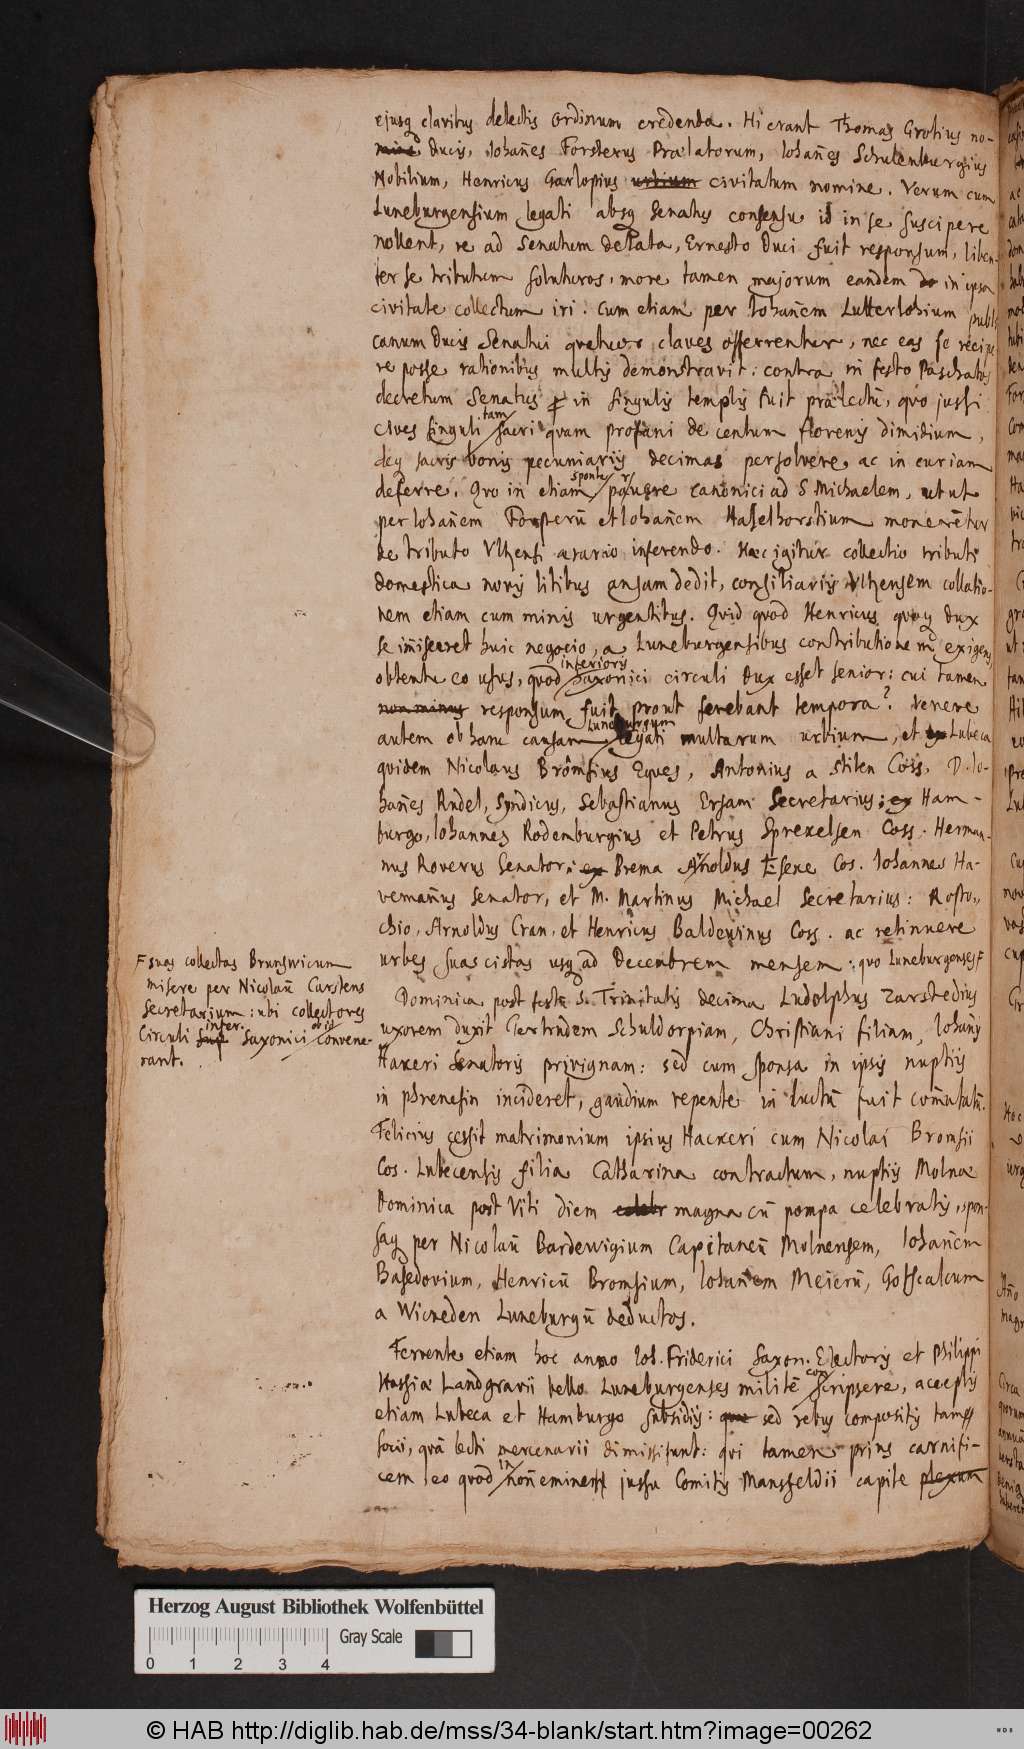 ejusq clavibus delectis Ordinum credenda. Hi erant Thomas Grotius no-
mine Ducis, Iohañes Forsterus Prælatorum, Iohañes Schulenburgius
Nobilium, Henricus Garlopius urbium civitatum nomine. Verum cum
Luneburgensium legati absq Senatus consensu id in se suscipere
nollent, re ad Senatum delata, Ernesto Duci fuit responsum, liben-
ter se tributum soluturos, more tamen majorum eandem do in ipsa
civitate collectum iri. Cum etiam per Iohañem Lutterlohium publi
canum Ducis Senatui quatuor claves offerrentur, nec eas se recipe
re posse rationibus multis demonstravit: contra in festo Paschatos
decretum Senatus in singulis templis fuit prælectū, quo jussi
cives singuli tam sacri quam profani de centum florenis dimidium,
deq sacris bonis pecuniariis decimas persolvere ac in curiam
deferre. Qvo in etiam sponte canonici ad S Michaelem, ut ut
per Iohañem Forsterū et Iohañem Haselhorstium monerētur
de tributo Vlzensi ærario inferendo. Hæc igitur collectio tributi
domestica novis litibus ansam dedit, consiliariis Vlzensem collatio-
nem etiam cum minis urgentibus. Qvid quod Henricus quoq Dux
se im̃isceret huic negocio, a Luneburgensibus contributionem exigens
obtentu eo usus, quod inferioris Saxonici circuli Dux esset senior: cui tamen
non minus responsum fuit prout ferebant tempora? Venere
autem ob hanc causam Luneburgum legati multarum urbium, et ex Lubeca
quidem Nicolaus Brömsius Eques, Antonius a Stiten Coss. D. Io-
hañes Rudel, Syndicus, Sebastianus Ersam Secretarius: ex Ham-
burgo, Iohannes Rodenburgius et Petrus Sprekelsen Coss. Herman-
nus Roverus Senator: ex Brema Arnoldus Esene Cos. Iohannes Ha-
vemañus Senator, et M. Martinus Michael Secretarius: Rosto-
chio, Arnoldus Cran, et Henricus Baldewinus Coss. ac retinuere
urbes suas cistas usq ad Decembrem mensem: quo Luneburgenses
F suas collectas Brunswicum
misere per Nicolaū Carstens
Secretarium: ubi collectores
Circuli Sup infer. Saxonici convene-
rant.
Dominica post festū S. Trinitatis decima Ludolphus Zarstedius
uxorem duxit Gertrudem Schuldorpiam, Christiani filiam, Iohañis
Hakeri Senatoris privignam: sed cum sponsa in ipsis nuptiis
in phrenesin incideret, gaudium repente in luctū fuit com̃utatū.
Felicius cessit matrimonium ipsius Hackeri cum Nicolai Bromsii
Cos. Lubecensis filia Catharina contractum, nuptiis Molnæ
Dominica post Viti diem celebr magna cū pompa celebratis, spon-
saq per Nicolaū Bardewigium Capitaneū Molnensem, Iohañem
Basedovium, Henricū Bromsium, Iohañem Meierū, Gotscalcum
a Wickeden Luneburgū deductos.
Fervente etiam hoc anno Ioh. Friderici Saxon. Electoris et Philippi
Hassiæ Landgravii bello Luneburgenses militē con scripsere, acceptis
etiam Lubeca et Hamburgo subsidiis: quæ sed rebus compositis tam
socii, quā lecti mercenarii dimissi sunt: qvi tamen prius carnifi-
cem eo quod in jussu Comitis Mansfeldii capite plexum
Herzog August Bibliothek Wolfenbüttel
Gray Scale
0 1 2 3 4
© HAB http://diglib.hab.de/mss/34-blank/start.htm?image=00262